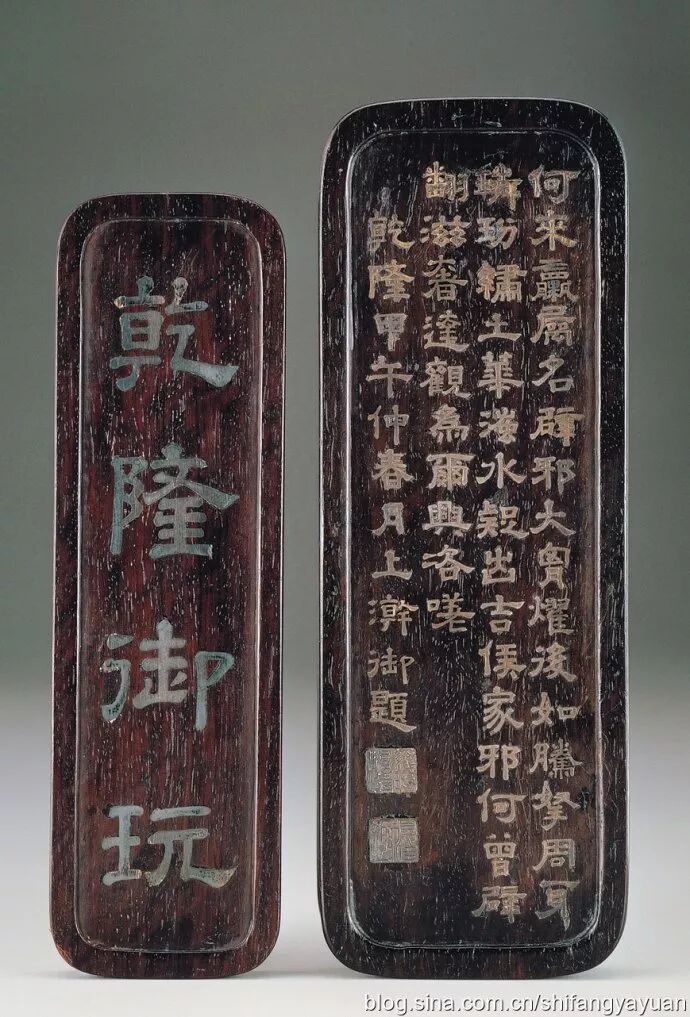 乾隆御玩
何來蠃屬名辟邪大胷燿後如騰拏周身
璘玢繡土華水疑出吉侯家邪何曾辟
翻滋奢達觀為爾興咨嗟
乾隆甲午仲春月上澣御題
blog.sina.com.cn/shifangyayuan